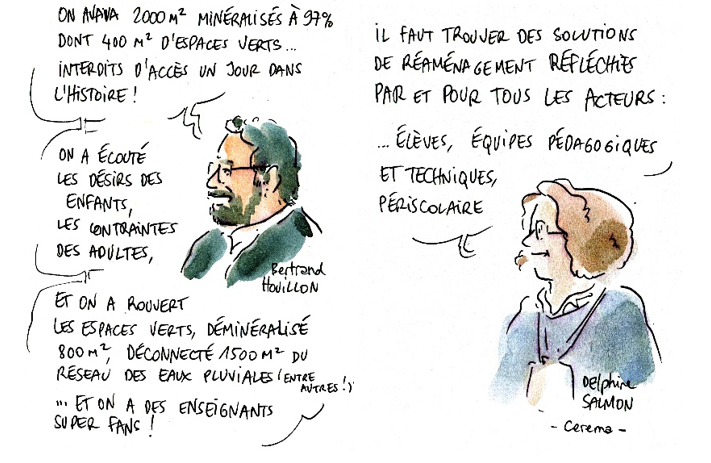 ON AVAVA 2000 M² MINÉRALISÉS À 97%
DONT 400 M² D'ESPACES VERTS...
INTERDITS D'ACCÈS UN JOUR DANS
L'HISTOIRE !
ON A ÉCOUTÉ
LES DÉSIRS DES
ENFANTS,
LES CONTRAINTES
DES ADULTES,
Bertrand
HOUILLON
ET ON A ROUVERT
LES ESPACES VERTS, DÉMINÉRALISÉ
800 M², DÉCONNECTÉ 1500 M² DU
RÉSEAU DES EAUX PLUVIALES (ENTRE
AUTRES !)
... ET ON A DES ENSEIGNANTS
SUPER FANS !
IL FAUT TROUVER DES SOLUTIONS
DE RÉAMÉNAGEMENT RÉFLÉCHIES
PAR ET POUR TOUS LES ACTEURS :
... ÉLÈVES, ÉQUIPES PÉDAGOGIQUES
ET TECHNIQUES,
PÉRISCOLAIRE
Delphine
SALMON
- Cerema -